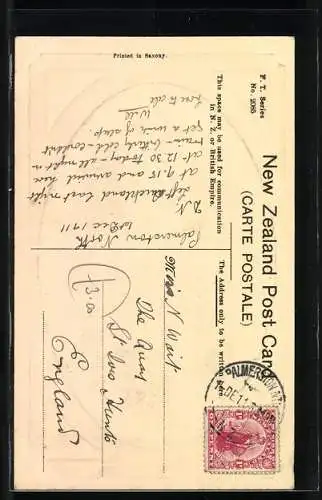 F. T. Series
No. 2085
New Zealand Post Card
(CARTE POSTALE)
This space may be used for communication
in N. Z. or British Empire.
The Address only to be written here
Printed in Saxony.
Palmerston North
1st Dec 1911
D N
Left Auckland last night
at 9.15 and arrived here
at 12.30 today - all night in
train - bitterly cold - couldn't
get a wink of sleep
Love to all
Will
Miss N Wait
The Quay
St Ives Hunts
England
£3.00
PALMERSTON N.
DE 11